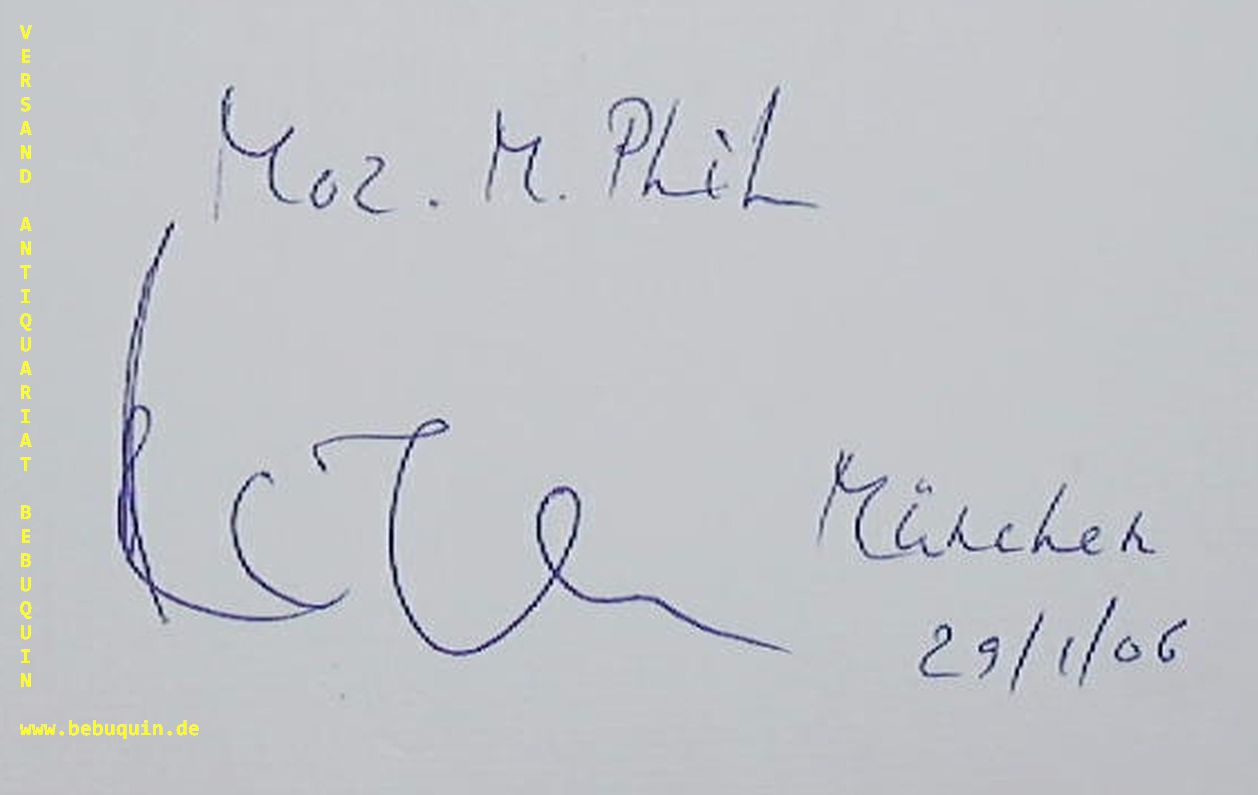 VERSAND ANTIQUARIAT BEBUQUIN
Moz. M. Phil
München
29/1/06
www.bebuquin.de